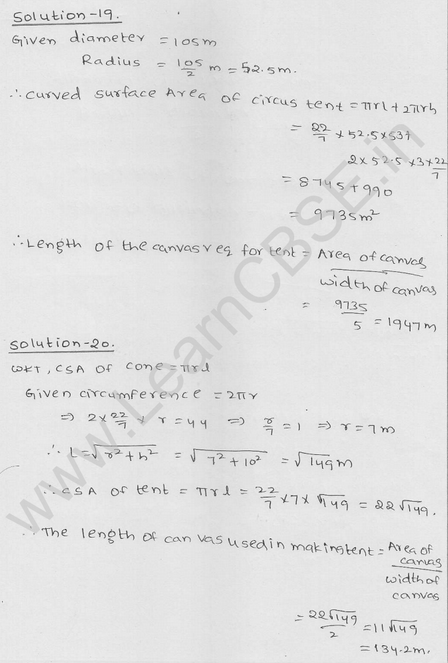 Solution-19.
Given diameter = 105m
Radius = 105/2 m = 52.5m.
∴ curved surface Area of circus tent = πrl + 2πrh
= 22/7 × 52.5 × 53+
2 × 52.5 × 3 × 22/7
= 8745 + 990
= 9735m²
∴ Length of the canvas req for tent = Area of canvas / width of canvas
= 9735/5 = 1947m
Solution-20.
WKT, CSA of cone = πrl
Given circumference = 2πr
⇒ 2 × 22/7 × r = 44 ⇒ r/7 = 1 ⇒ r = 7m
∴ L = √r²+h² = √7²+10² = √149 m
∴ CSA of tent = πrl = 22/7 × 7 × √149 = 22√149.
∴ The length of canvas used in making tent = Area of canvas / width of canvas
= 22√149/2 = 11√149
= 134.2m.
www.LearnCBSE.in